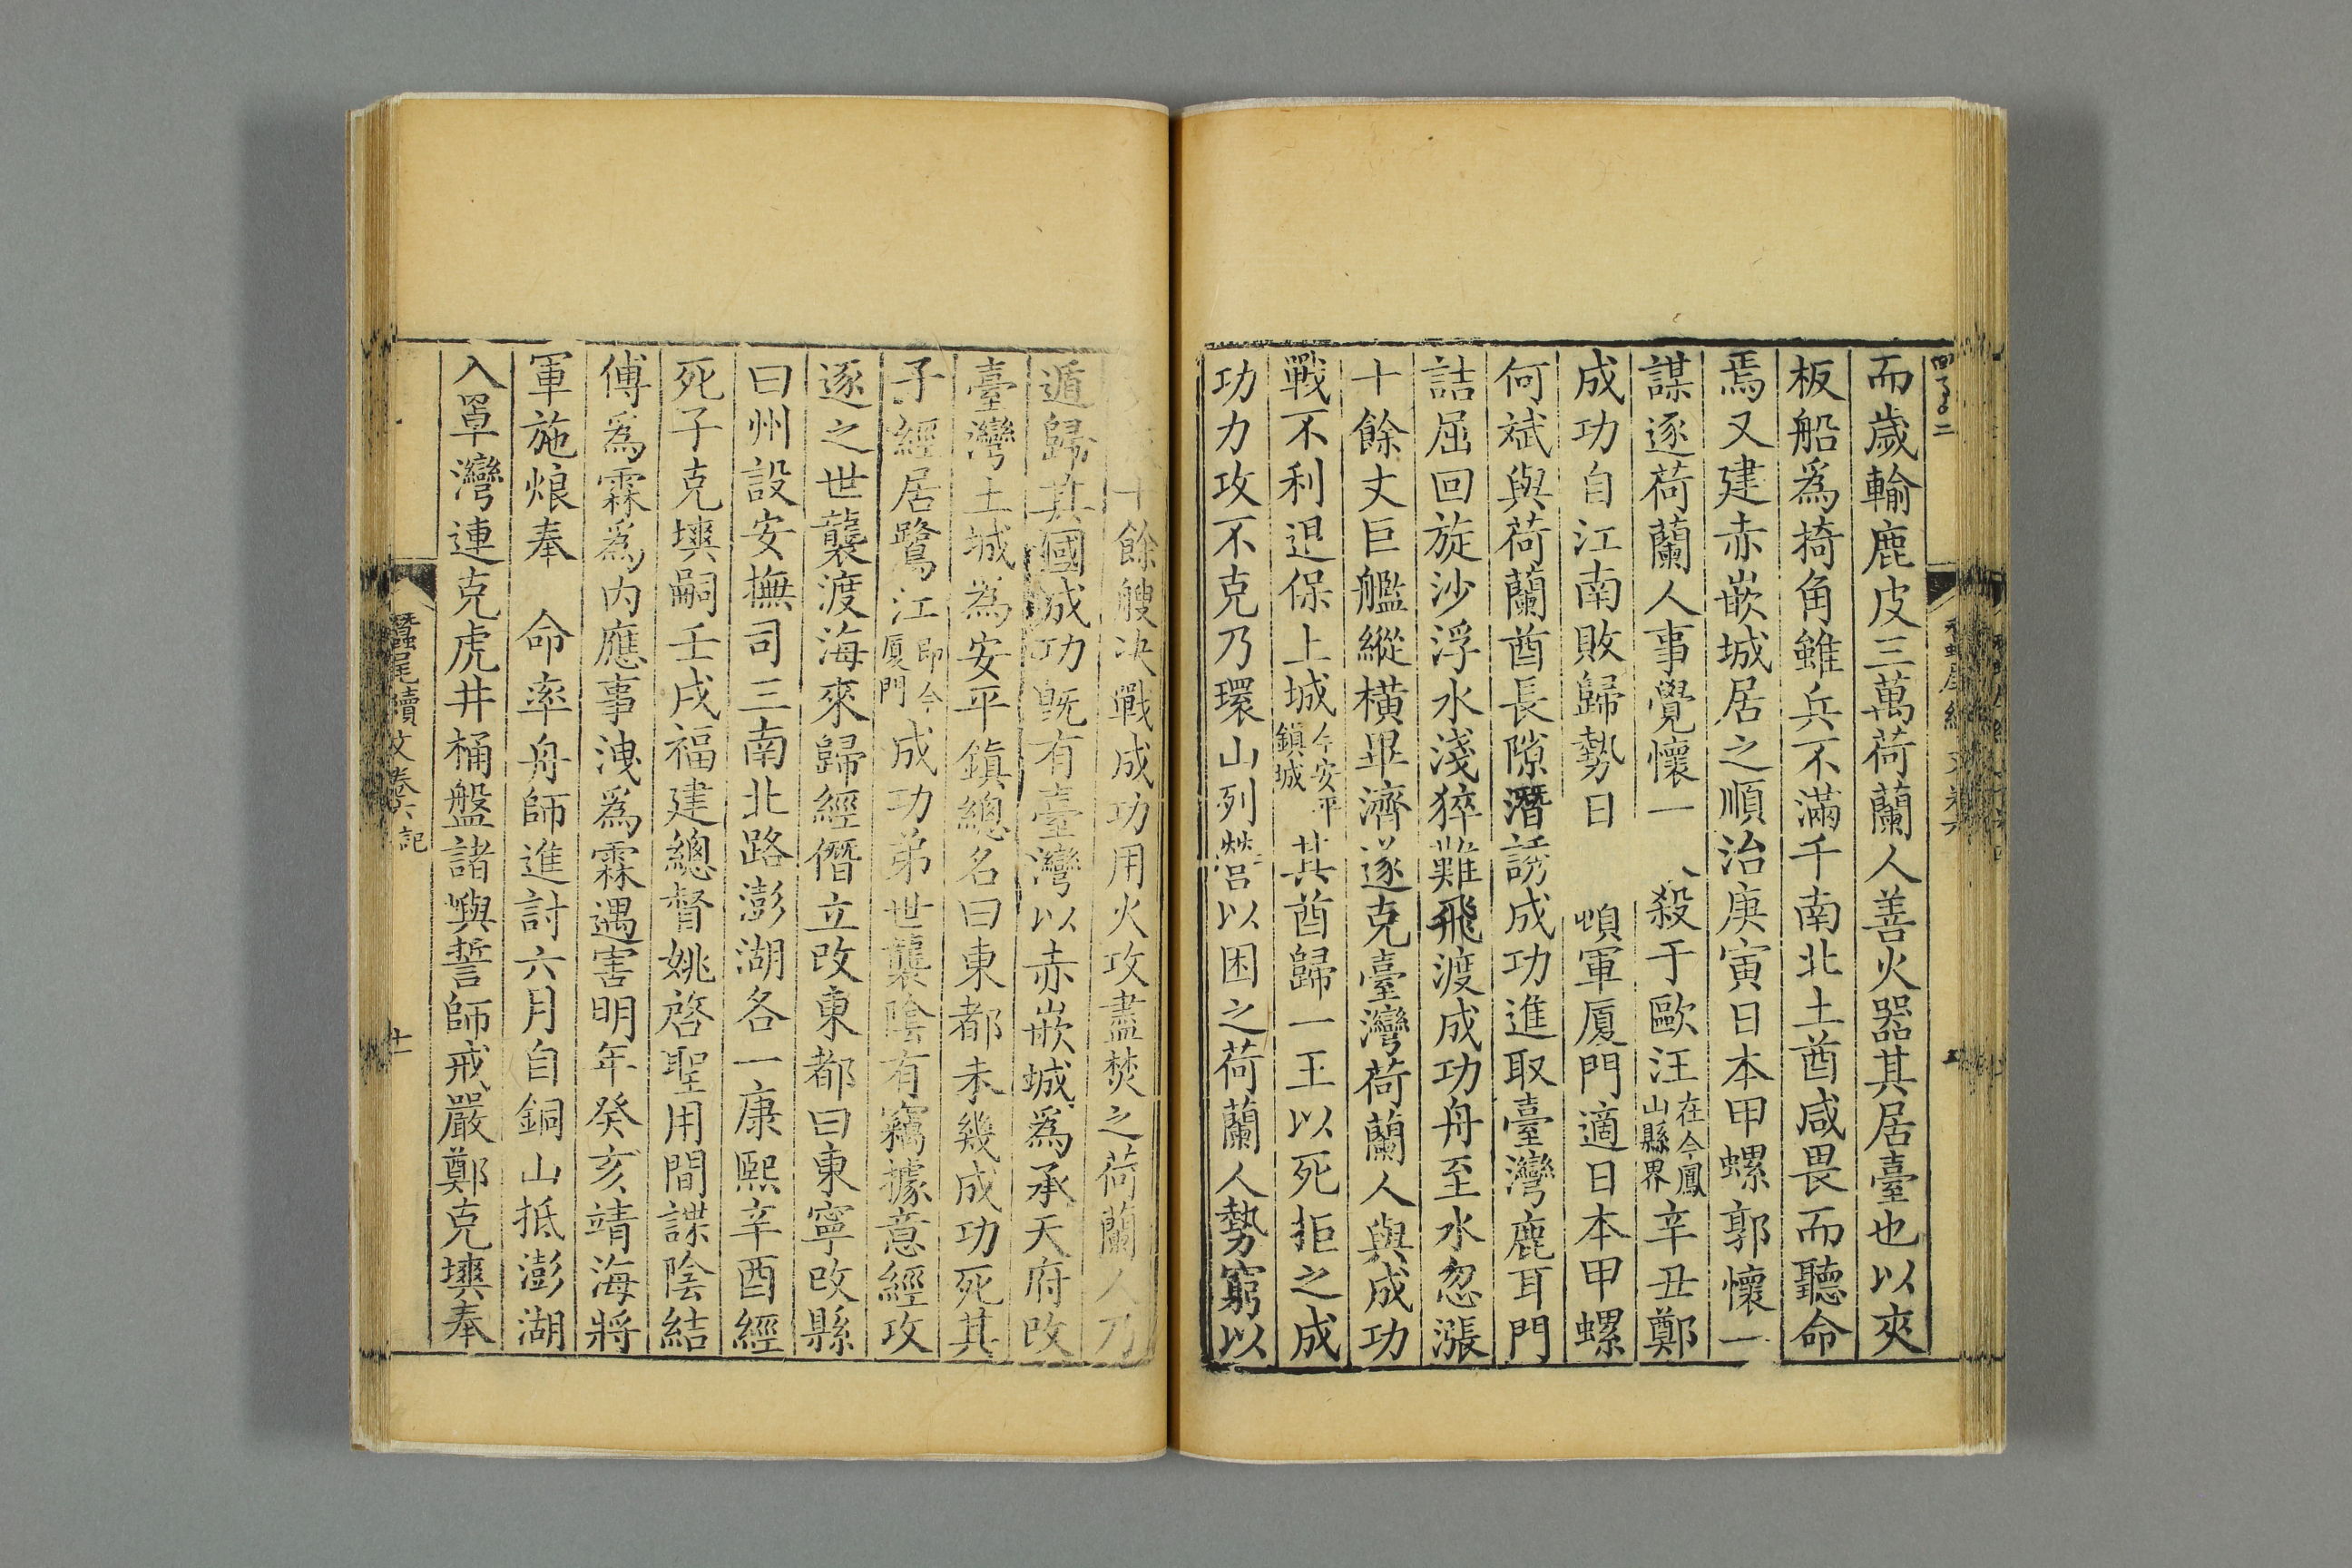 而歲輸鹿皮三萬荷蘭人善火器其居臺也以夾
板船爲掎角雖兵不滿千南北土酋咸畏而聽命
焉又建赤嵌城居之順治庚寅日本甲螺郭懷一
謀逐荷蘭人事覺懷一 殺于歐汪在今鳳山縣界辛丑鄭
成功自江南敗歸勢日 頓軍厦門適日本甲螺
何斌與荷蘭酋長隙潛誘成功進取臺灣鹿耳門
詰屈回旋沙浮水淺猝難飛渡成功舟至水忽漲
十餘丈巨艦縱橫畢濟遂克臺灣荷蘭人與成功
戰不利退保上城今安平鎮城其酋歸一王以死拒之成
功力攻不克乃環山列營以困之荷蘭人勢窮以
十餘艘决戰成功用火攻盡焚之荷蘭人乃
遁歸其國成功旣有臺灣以赤嵌城爲承天府改
臺灣土城為安平鎮總名曰東都未幾成功死其
子經居鷺江即今厦門成功弟世襲陰有竊據意經攻
逐之世襲渡海來歸經僭立改東都曰東寧改縣
曰州設安撫司三南北路澎湖各一康熙辛酉經
死子克塽嗣壬戌福建總督姚啓聖用間諜陰結
傅爲霖爲内應事洩爲霖遇害明年癸亥靖海將
軍施烺奉 命率舟師進討六月自銅山抵澎湖
入罩灣連克虎井桶盤諸嶼誓師戒嚴鄭克塽奉
蠶尾續文卷六 記
十一